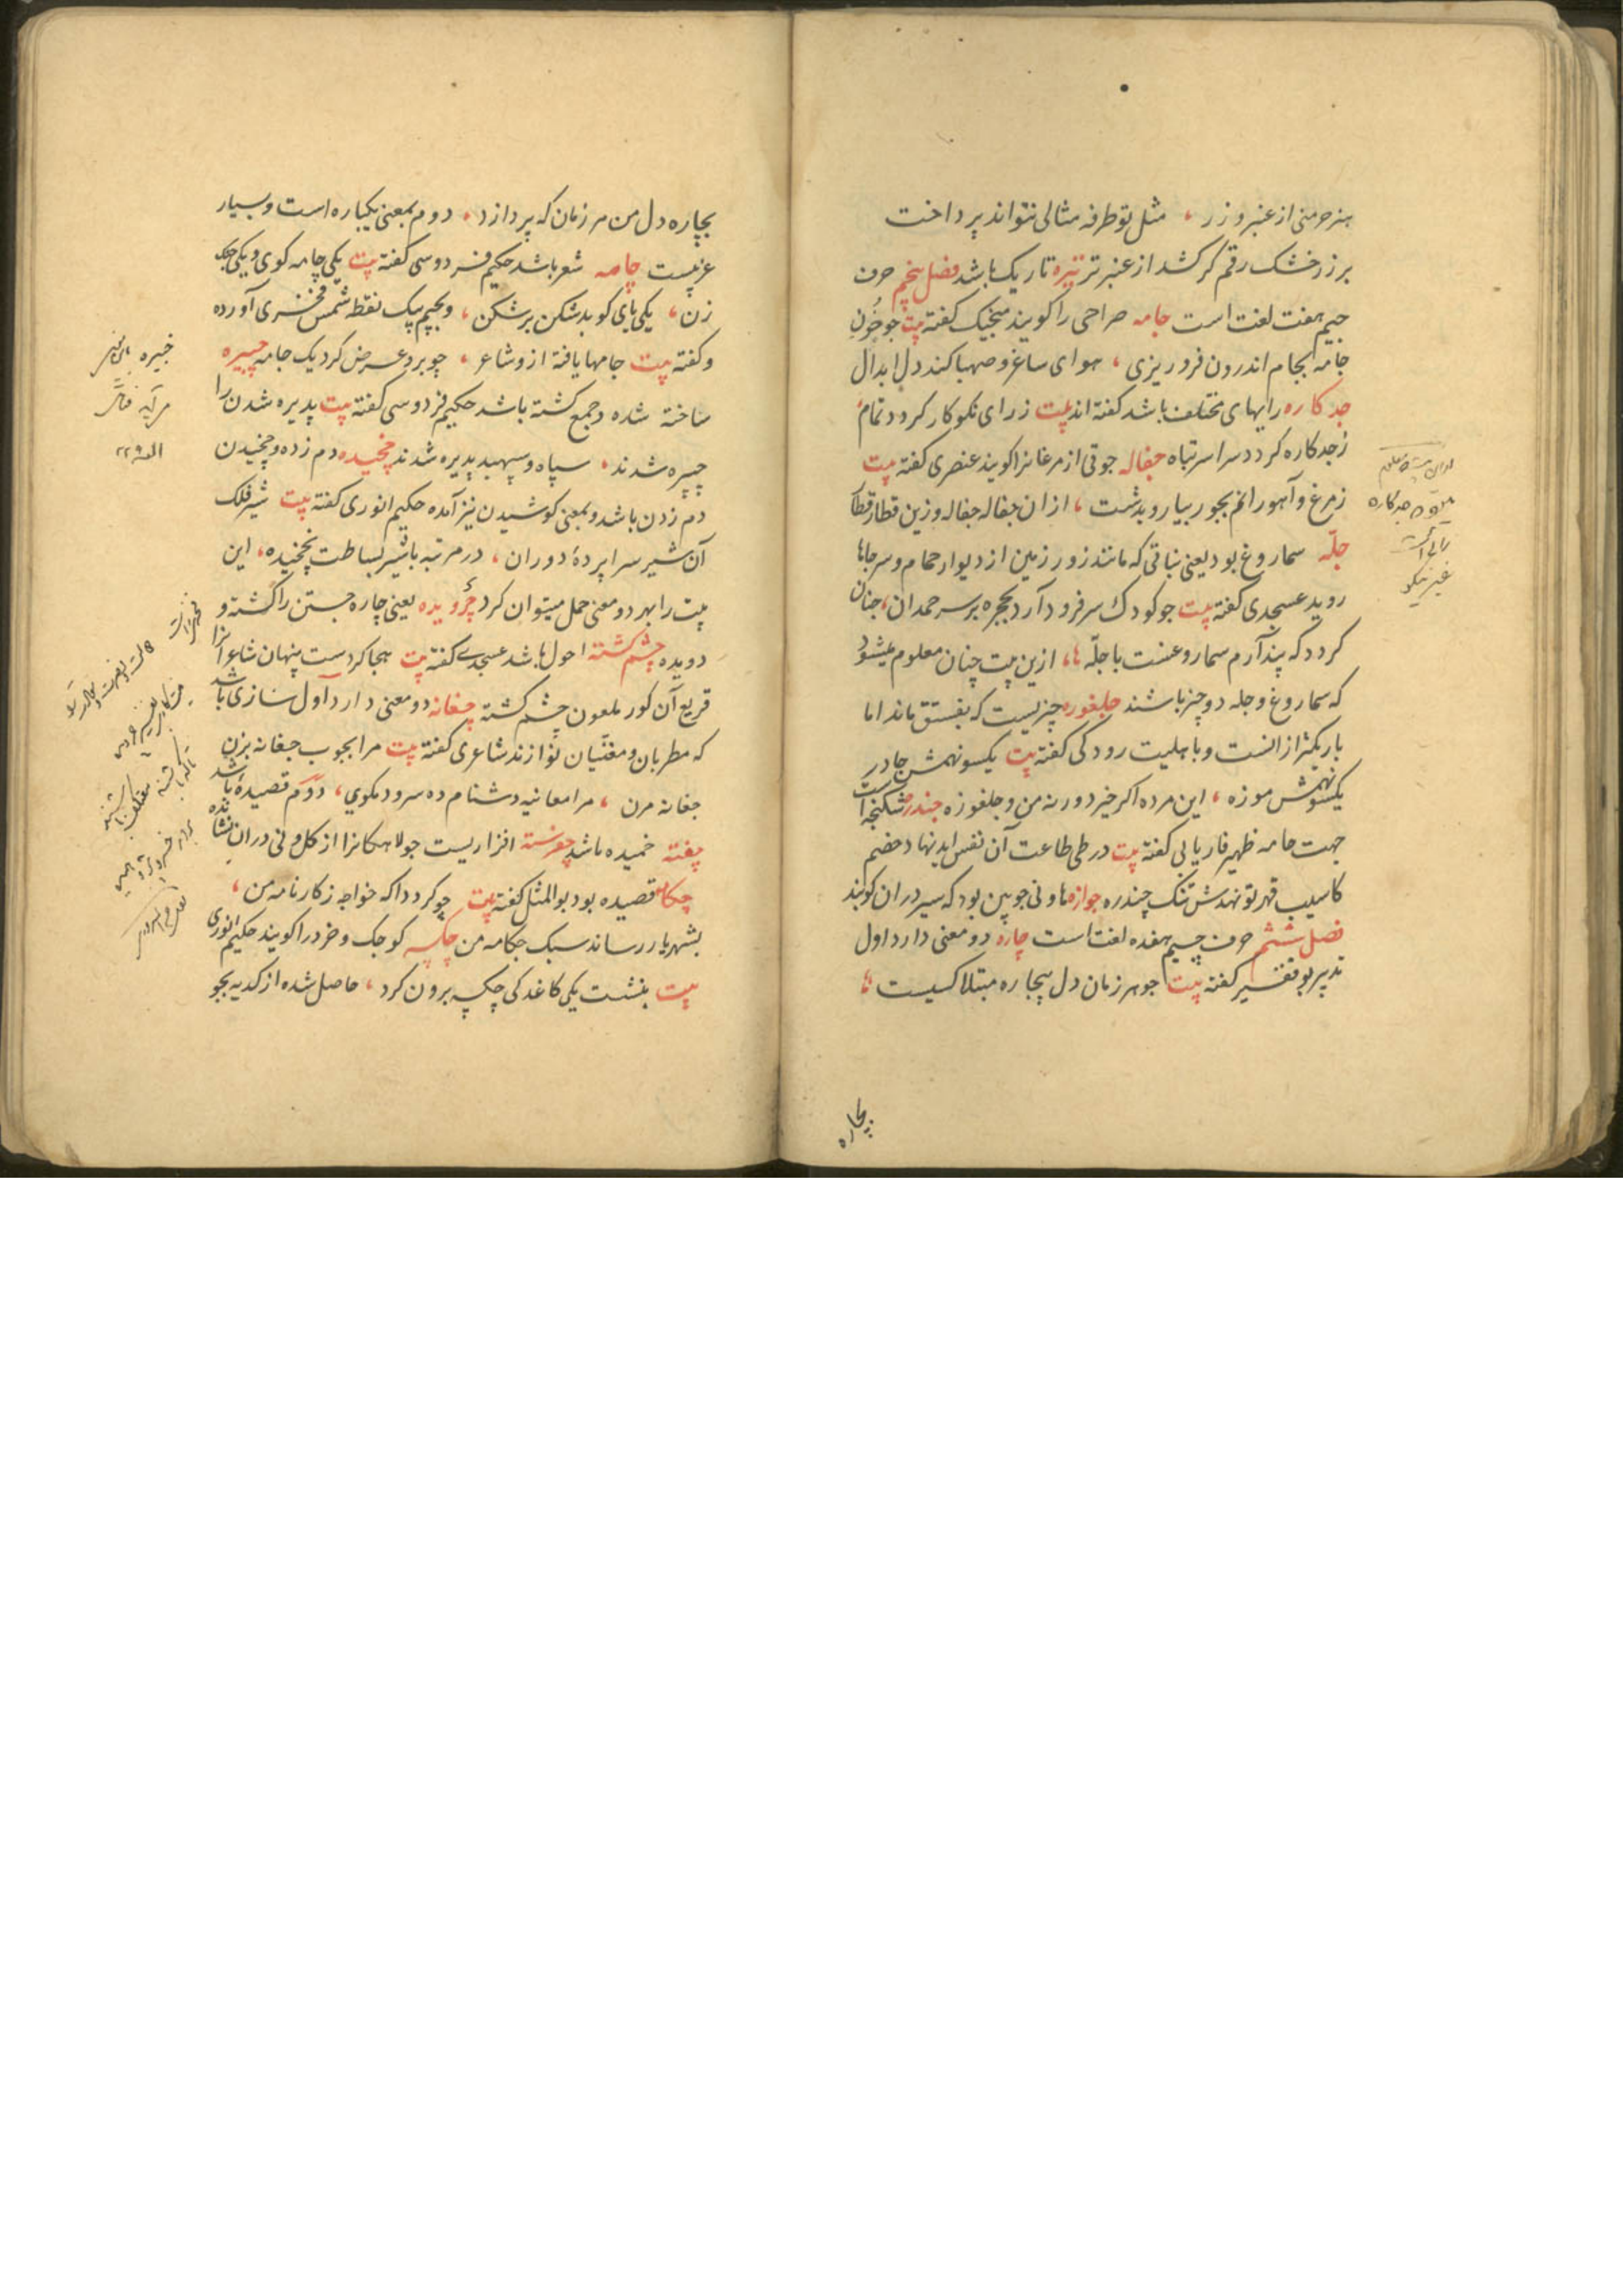 هنر حرمنی از عنبر و زر ، مثل تو طرفه مثالی نتواند پرداخت
بر زر خشک رقم کر کشد از عنبر تر تیره تاریک باشد فصل پنجم حرف
جیم هفت لغت است جامه صراحی را کویند منجیک کفته بیت جو خون
جامه بجام اندرون فرو ریزی ، هوای ساغر و صهبا کند دل ابدال
جد کاره رایهای مختلف باشد کفته اند بیت ز رای نکو کار کردد تمام
ز جد کاره کردد سراسر تباه جفاله جوقی از مرغانرا کویند عنصری کفته بیت
ز مرغ و آهو رانم بجویبار و بدشت ، ازان جفاله جفاله وزین قطار قطار
جله سماروغ بود یعنی نباتی که مانند زور زمین از دیوار حمام و سرجاها
روید عسجدی کفته بیت جو کودک سر فرود آرد بحجره بر سر حمدان ، جنان
کردد که پندآرم سماروغست با جله ها ، ازین بیت چنان معلوم میشود
که سماروغ و جله دو چیز باشند جلغوزه چیزیست که بفستق ماند اما
باریکتر از انست و با هلیت رودکی کفته بیت یکسو نهمش جادر
یکسو نهمش موزه ، این مرده اکر خیزد ورنه من و جلغوزه جندره شکنجه است
جهت جامه ظهیر فاریابی کفته بیت در طی طاعت آن نفس ایدنهاد خصم
کاسیب قهر تو نهدش تنک چندره جوازه هاونی جوبین بود که سیر دران کوبند
فصل ششم حرف چیم هفده لغت است چاره دو معنی دارد اول
تدبیر بو کفته بیت جو هر زمان دل بیچاره مبتلا کسیست
بچاره
بچاره دل من هر زمان که پردازد ، دوم بمعنی یکباره است و بسیار
عزیست چامه شعر باشد حکیم فردوسی کفته بیت یکی چامه کوی و یکی چنک
زن ، یکی پای کوبد شکن بر شکن ، و بجیم بیک نقطه شمس فخری آورده
و کفته بیت جامها یافته ازو شاعر ، جو برو عرض کرد یک جامه چپیره
ساخته شده و جمع کشته باشد حکیم فردوسی کفته بیت پذیره شدن را
چپیره شدند ، سپاه و سپهبد پذیره شدند چخیده دم زده و چخیدن
دم زدن باشد و بمعنی کوشیدن نیز آمده حکیم انوری کفته بیت شیر فلک
آن شیر سراپردهٔ دوران ، در مرتبه با شیر بساطت نچخیده ، این
بیت را بهر دو معنی حمل میتوان کرد یعنی چاره جستن را کشته و
دویده چشم کشته احول باشد عسجدی کفته بیت هجا کردست پنهان شاعرانرا
قریع آن کور ملعون چشم کشته چغانه دو معنی دارد اول سازی باشد
که مطربان و مغنیان نوازند شاعری کفته بیت مرا بجوب جغانه بزن
جغانه مزن ، مرا معانیه دشنام ده سرود مکوی ، دوم قصیده باشد
چفته خمیده باشد افزاریست جولاهکانرا از کل و نی دران نشانده
چکامه قصیده بود بوالمثل کفته بیت جو کردد اکه خواجه ز کارنامه من ،
بشهریار رساند سبک جکامه من چکسه کوجک و خرد را کویند حکیم انوری
بیت بنشست یکی کاغدکی چکسه برون کرد ، حاصل شده از کدیه بجو